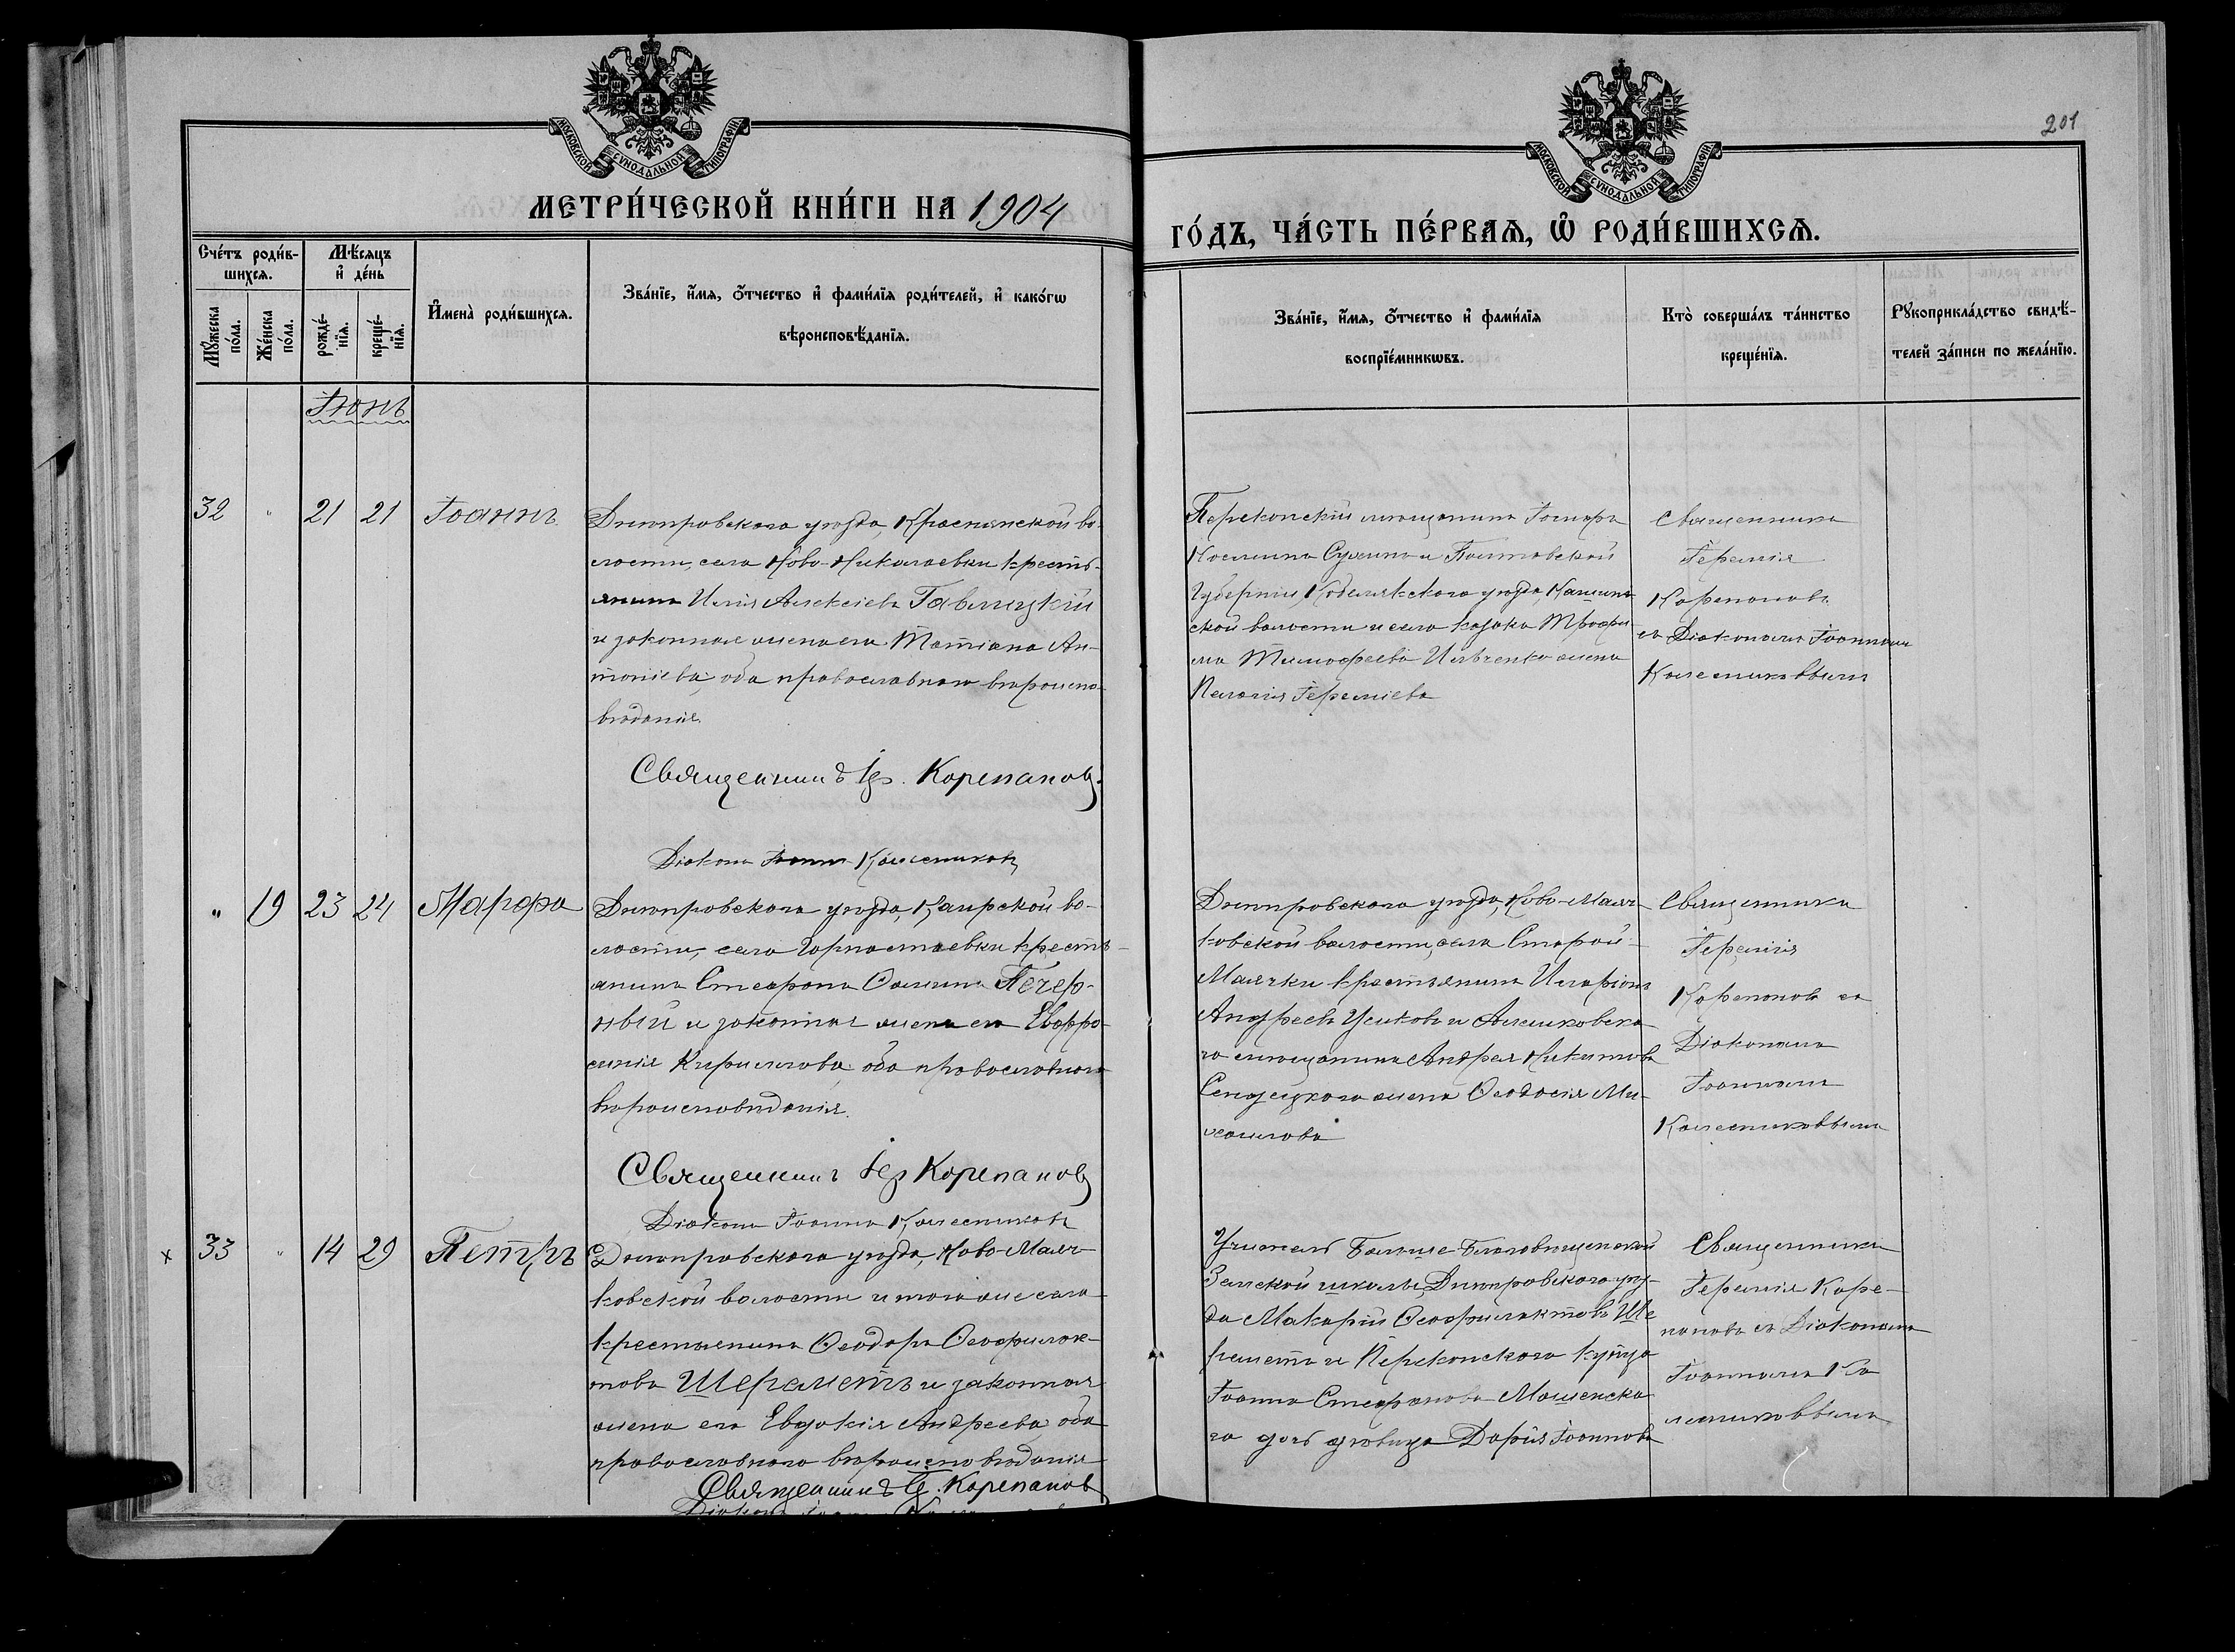 201
МОСКОВСКОЙ СѴНОДАЛЬНОЙ ТИПОГРАФІИ
МОСКОВСКОЙ СѴНОДАЛЬНОЙ ТИПОГРАФІИ
МЕТРИ́ЧЕСКОЙ КНИ́ГИ НА 1904
ГО́ДЪ, ЧА́СТЬ ПЕ́РВАЯ, Ѡ РОДИ́ВШИХСЯ.
Сче́тъ роди́в-
шихся.
Мꙋжеска
по́ла.
Же́нска
по́ла.
Мѣ́сяцъ
и҆ де́нь
рожде́-
нїя.
креще́-
нїя.
И҆мена̀ роди́вшихся.
Зва́нїе, и҆́мя, ѻ҆́тчество и҆ фами́лїя роди́телей, и҆ како́гѡ
вѣроисповѣ́данїя.
Зва́нїе, и҆́мя, ѻ҆́тчество и҆ фами́лїя
воспрїе́мникѡвъ.
Кто̀ соверша́лъ та́инство
креще́нїя.
Рꙋкоприкла́дство свидѣ́-
телей за́писи по жела́нїю.
Іюнь
32 " 21 21 Іоаннъ
Днѣпровскаго уѣзда, Краснянской во-
лости, села Ново-Николаевки кресть-
янинъ Илія Алексіевъ Гавлицкій
и законная жена его Татіана Ан-
тоніева, оба православнаго вѣроиспо-
вѣданія
Священникъ Іер. Корепановъ.
Діаконъ Іоаннъ Колесниковъ
Перекопскій мѣщанинъ
Косьминъ и Полтавской
Губерніи, Кобелякскаго уѣзда,
ской волости и села козака Трофи-
ма Тимофеева Ильченко жена
Пелагія Іереміева
Священникъ
Іеремія
Корепановъ
съ Діакономъ Іоанномъ
Колесниковымъ
" 19 23 24 Марфа
Днѣпровскаго уѣзда, Каирской во-
лости, села Горностаевки кресть-
янинъ Стефанъ Ѳоминъ Печер-
ный и законная жена его Евфро-
синія Кириллова, оба православнаго
вѣроисповѣданія.
Священникъ Іер Корепановъ
Діаконъ Іоаннъ Колесниковъ
Днѣпровскаго уѣзда, Ново-Маяч-
ковской волости, села Старой-
Маячки крестьянинъ Иларіонъ
Андреевъ Усиковъ и Алешковска-
го мѣщанина Андрея Никитова
Сендецкаго жена Ѳеодосія Ми-
хаилова
Священникъ
Іеремія
Корепановъ съ
Діакономъ
Іоанномъ
Колесниковымъ
х 33 " 14 29 Петръ
Днѣпровскаго уѣзда, Ново-Маяч-
ковской волости и того же села
крестьянинъ Ѳеодоръ Ѳеофилак-
товъ Шереметъ и законная
жена его Евдокія Андреева, оба
православнаго вѣроисповѣданія
Священникъ Іер. Корепановъ
Діаконъ Іоаннъ
Учитель Больше-Благовѣщенской
Земской школы, Днѣпровскаго уѣз-
да Макарій Ѳеофилактовъ Ше
реметъ и Перекопскаго купца
Іоанна Стефанова Мошенска
го дочь дѣвица Дарія Іоаннова
Священникъ
Іеремія Коре-
пановъ съ Діакономъ
Іоанномъ Ко
лесниковымъ